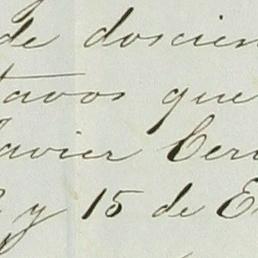 de doscien
tavos que
avier Cer
y 15 de E